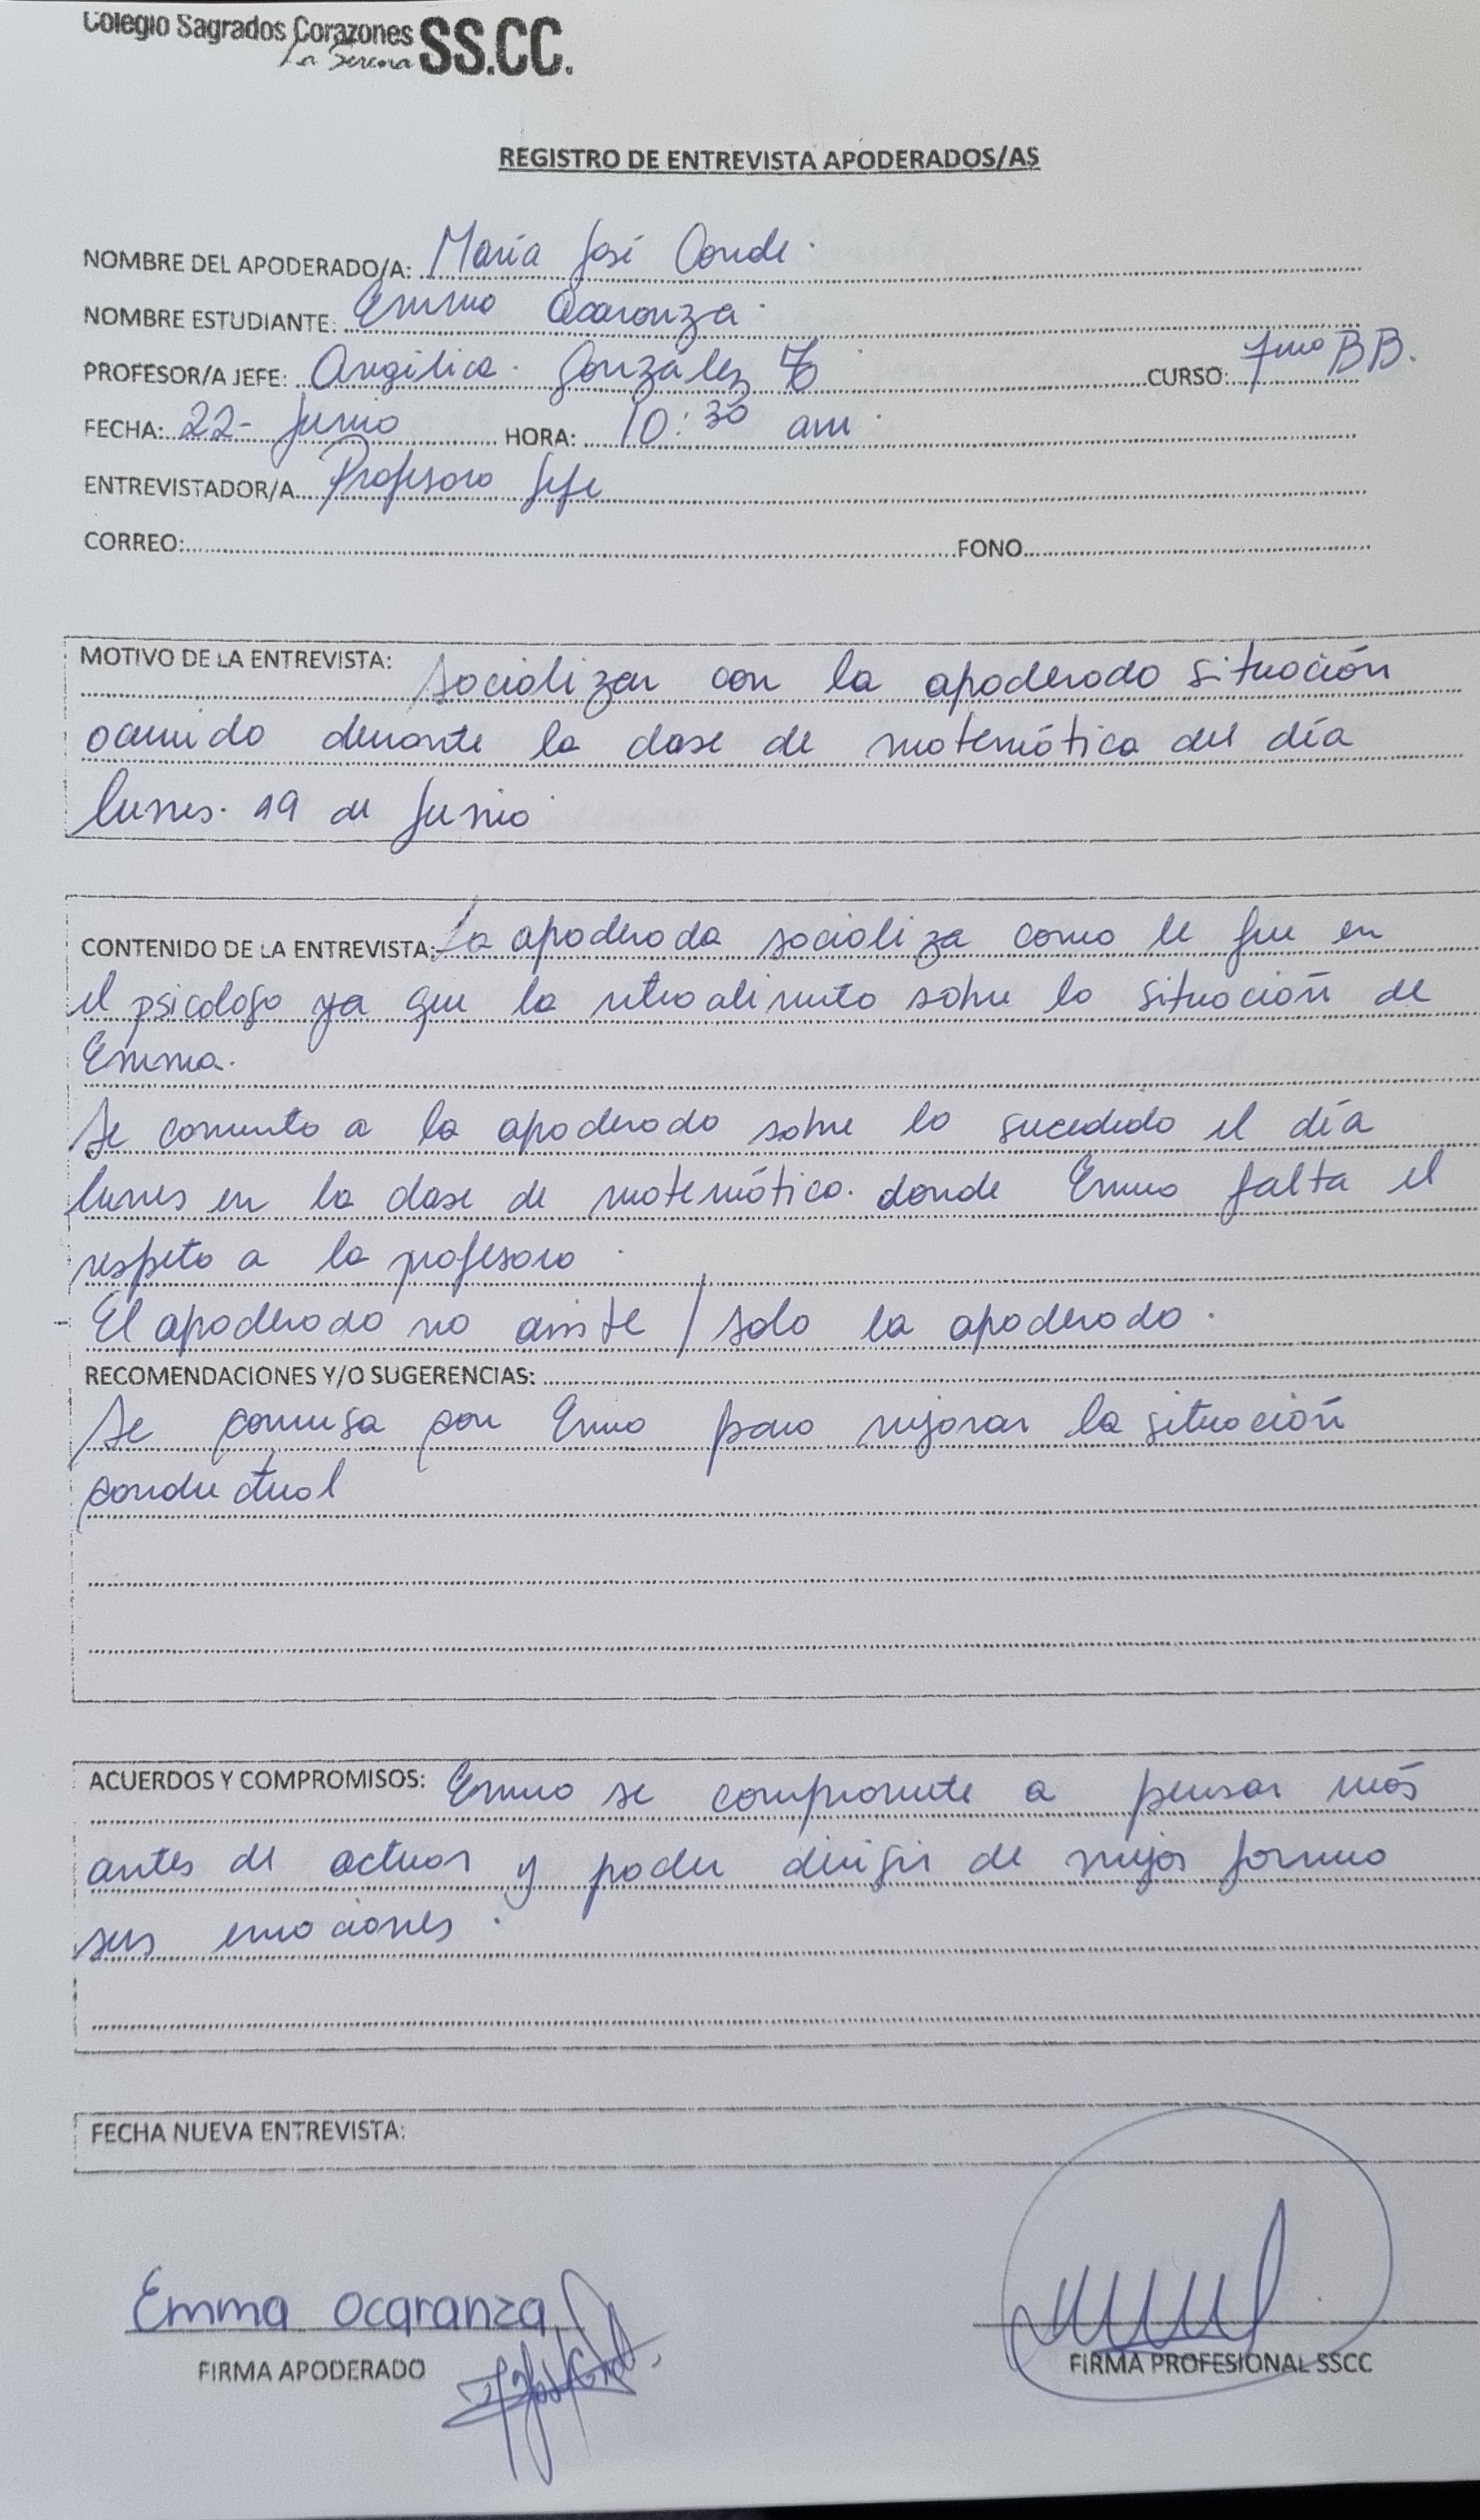 Colegio Sagrados Corazones SS.CC.
La Serena
REGISTRO DE ENTREVISTA APODERADOS/AS
NOMBRE DEL APODERADO/A: María José Conde.
NOMBRE ESTUDIANTE: Emma Ocaranza.
PROFESOR/A JEFE: Angélica. González CURSO: 7mo BB.
FECHA: 22- Junio HORA: 10:30 am.
ENTREVISTADOR/A Profesora Jefe
CORREO: FONO
MOTIVO DE LA ENTREVISTA: Socializar con la apoderada situación
ocurrida durante la clase de matemática del día
lunes. 19 de Junio
CONTENIDO DE LA ENTREVISTA: La apoderada socializa como le fue en
el psicologo ya que la retroalimento sobre la situación de
Emma.
Se comenta a la apoderada sobre lo sucedido el día
lunes en la clase de matemática. donde Emma falta el
respeto a la profesora.
El apoderado no asiste / solo la apoderada.
RECOMENDACIONES Y/O SUGERENCIAS:
Se conversa con Emma para mejorar la situación
conductual
ACUERDOS Y COMPROMISOS: Emma se compromete a pensar más
antes de actuar y poder dirigir de mejor forma
sus emociones.
FECHA NUEVA ENTREVISTA:
Emma Ocaranza
FIRMA APODERADO FIRMA PROFESIONAL SSCC